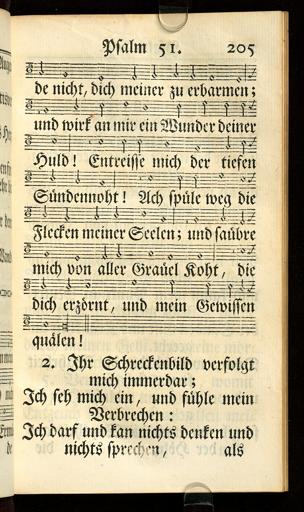 Psalm 51. 205
de nicht, dich meiner zu erbarmen;
und wirk an mir ein Wunder deiner
Huld! Entreisse mich der tiefen
Sündennoht! Ach spüle weg die
Flecken meiner Seelen; und saübre
mich von aller Graüel Koht, die
dich erzörnt, und mein Gewissen
quälen!
2. Ihr Schreckenbild verfolgt
mich immerdar;
Ich seh mich ein, und fühle mein
Verbrechen:
Ich darf und kan nichts denken und
nichts sprechen, als